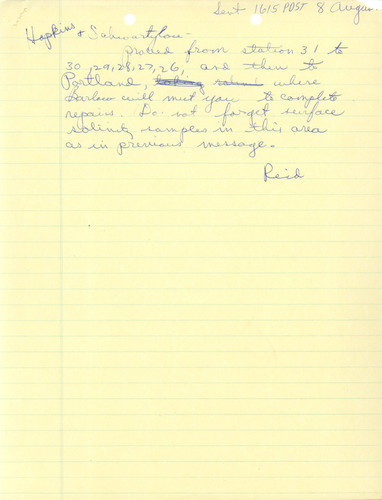 Sent 1615 PDST 8 Augu
Hopkins & Schwartzlose -
proceed from station 31 to
30, 29, 28, 27, 26, and then to
Portland, where
Barlow will meet you to complete
repairs. Do not forget surface
salinity samples in this area
as in previous message.
Reid